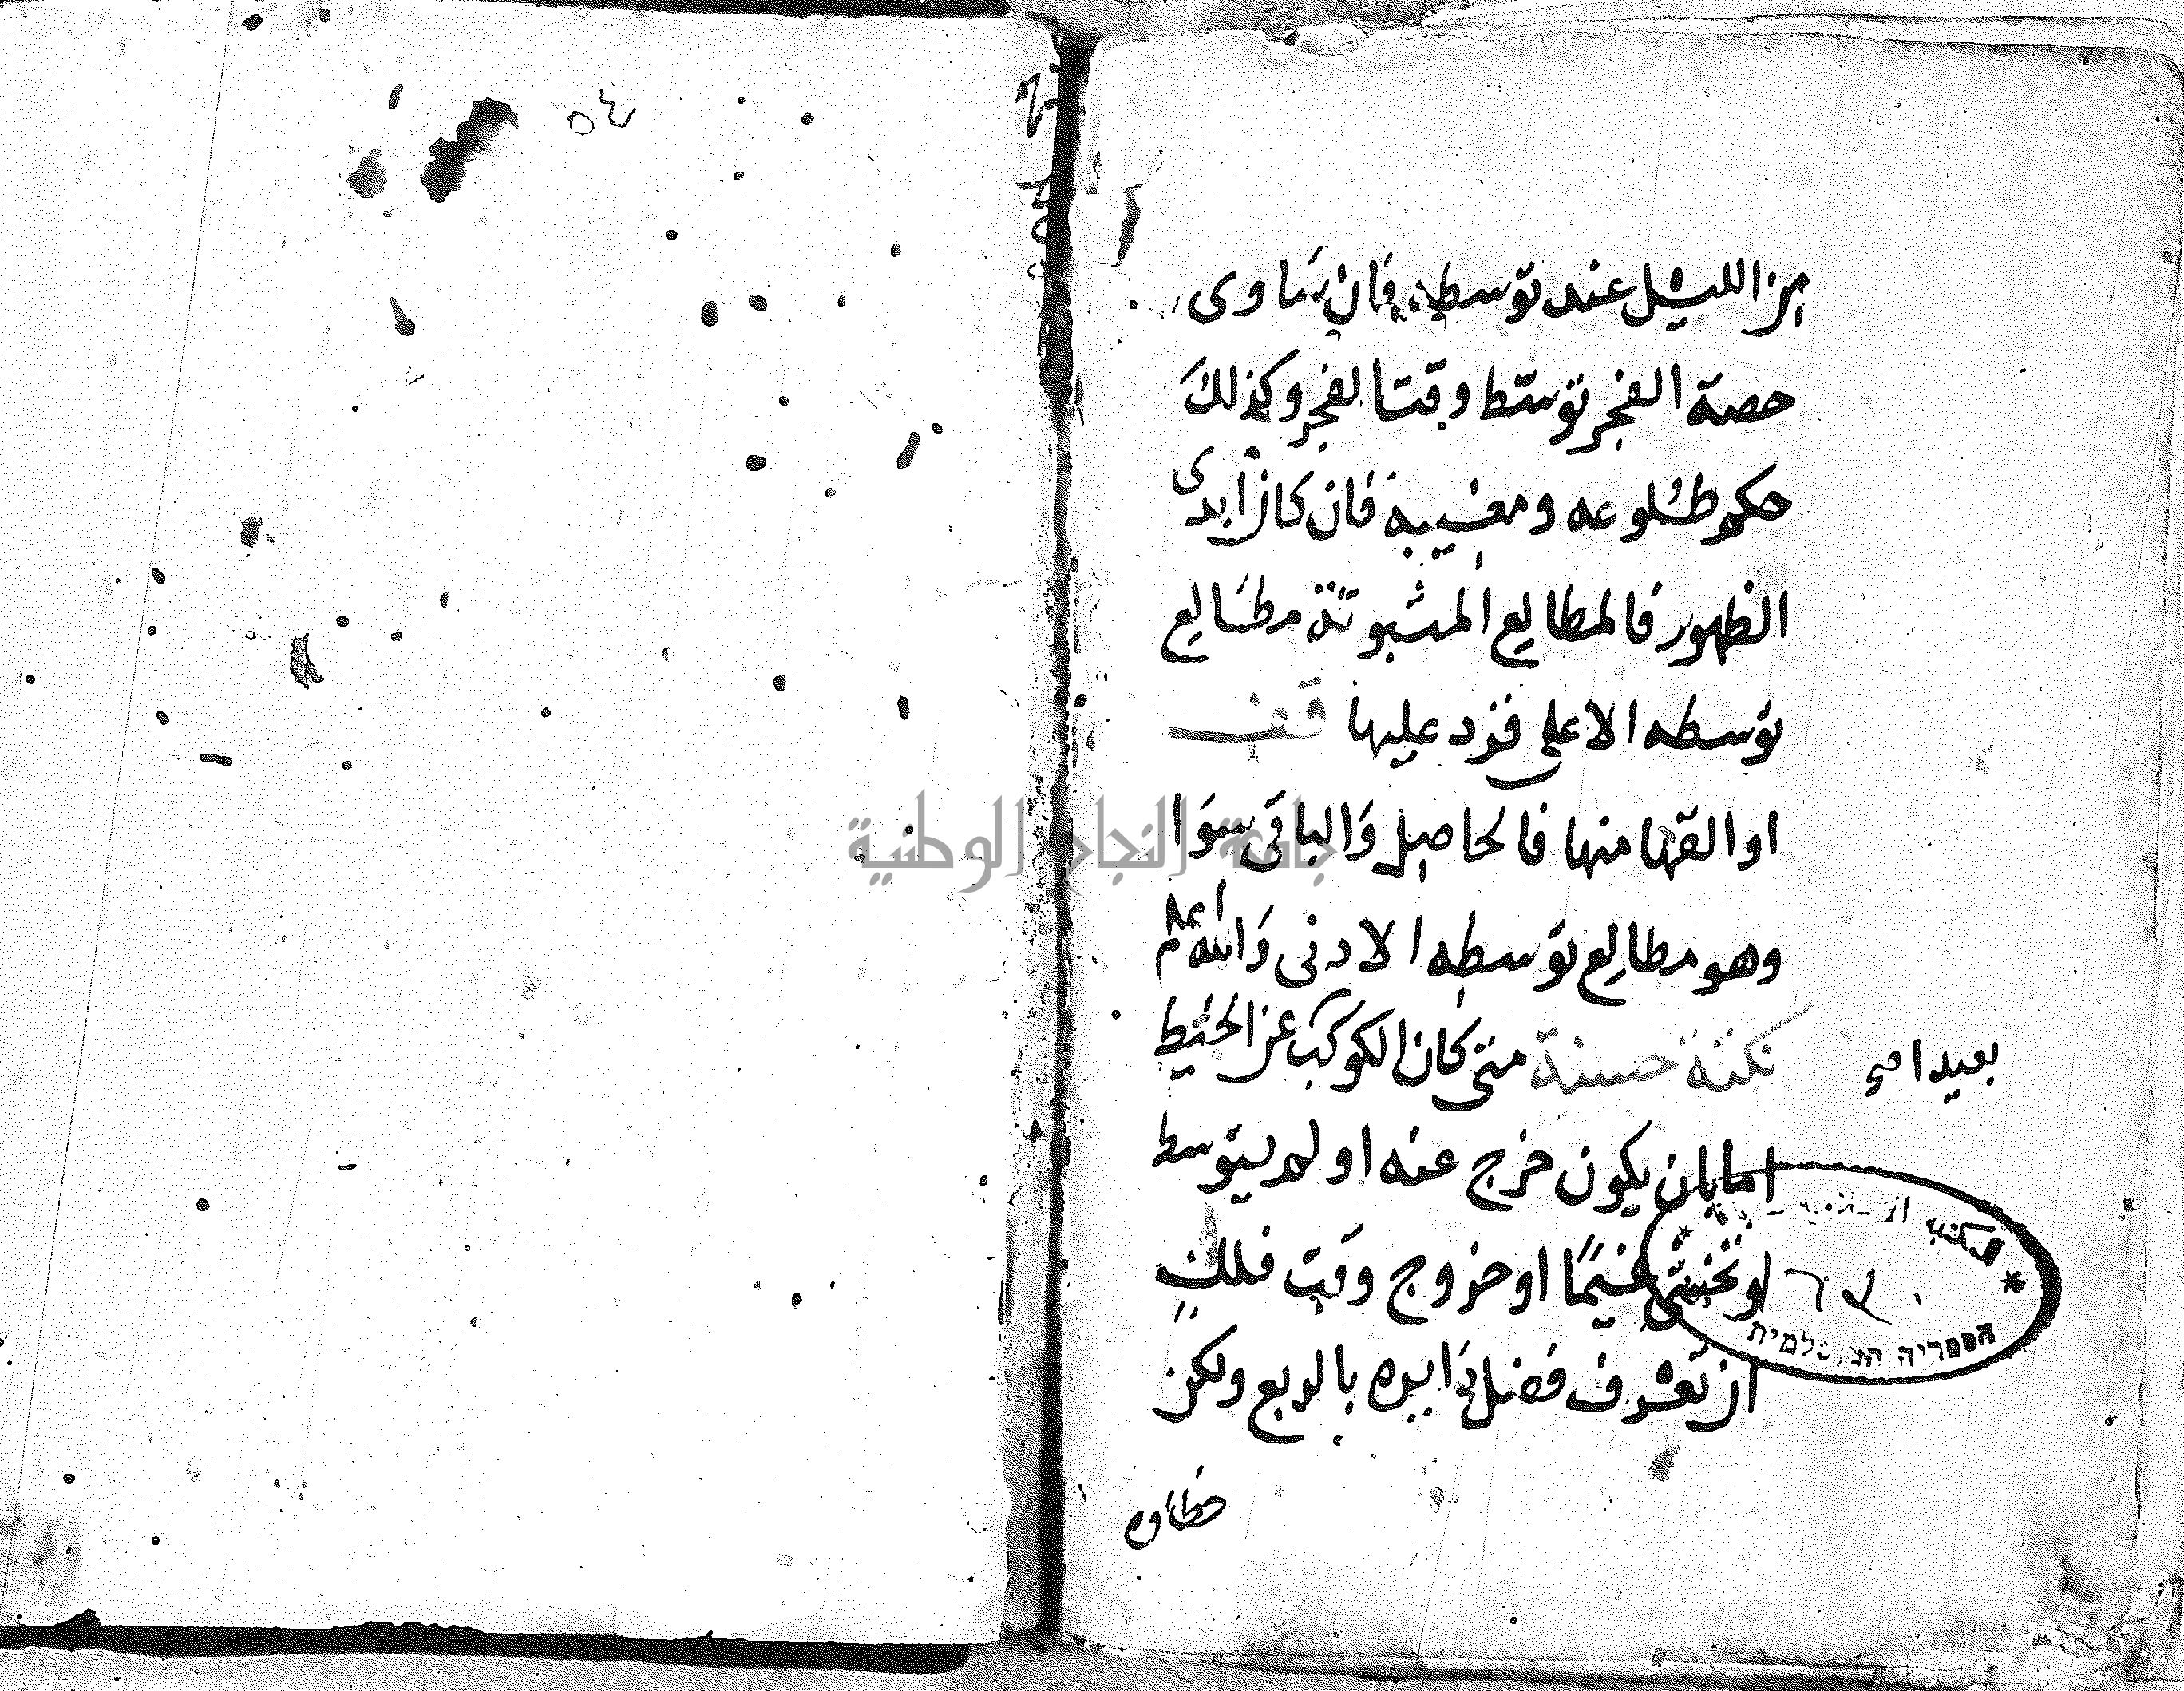 من الليل عند توسطه فان ساوى
حصة الفجر توسط وقت الفجر وكذلك
حكم طلوعه ومغيبه فان كان ابدى
الظهور فالمطالع المثبوتة مطالع
توسطه الاعلى فزد عليها قف
او القها منها فالحاصل والباقى سوا
وهو مطالع توسطه الادنى والله اعلم
نكتة حسنة متى كان الكوكب عن الخيط
بعيدا
اما بان يكون خرج عنه او لم يتوسط
او تخشى غيما او خروج وقت فلك
ان تعرف فضل دايره بالربع ولكن
خطاوه
المكتبة
הספריה
٥٤
جامعة النجاح الوطنية